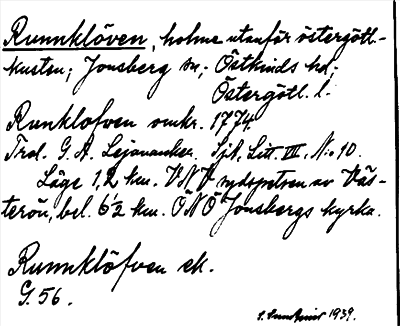 Runnklöven, holme utanför östergötl-
kusten; Jonsberg sn; Östkinds hd;
Östergötl. l.
Runklofven omkr. 1774.
Trol. G. A. Lejonancker. Sjk. Litt. III. No 10.
Läge 1,2 km. VNV sydspetsen av Väs-
terön, bel. 6½ km. ONO Jonsbergs kyrka.
Runnklöfven ek.
G. 56.
1939.